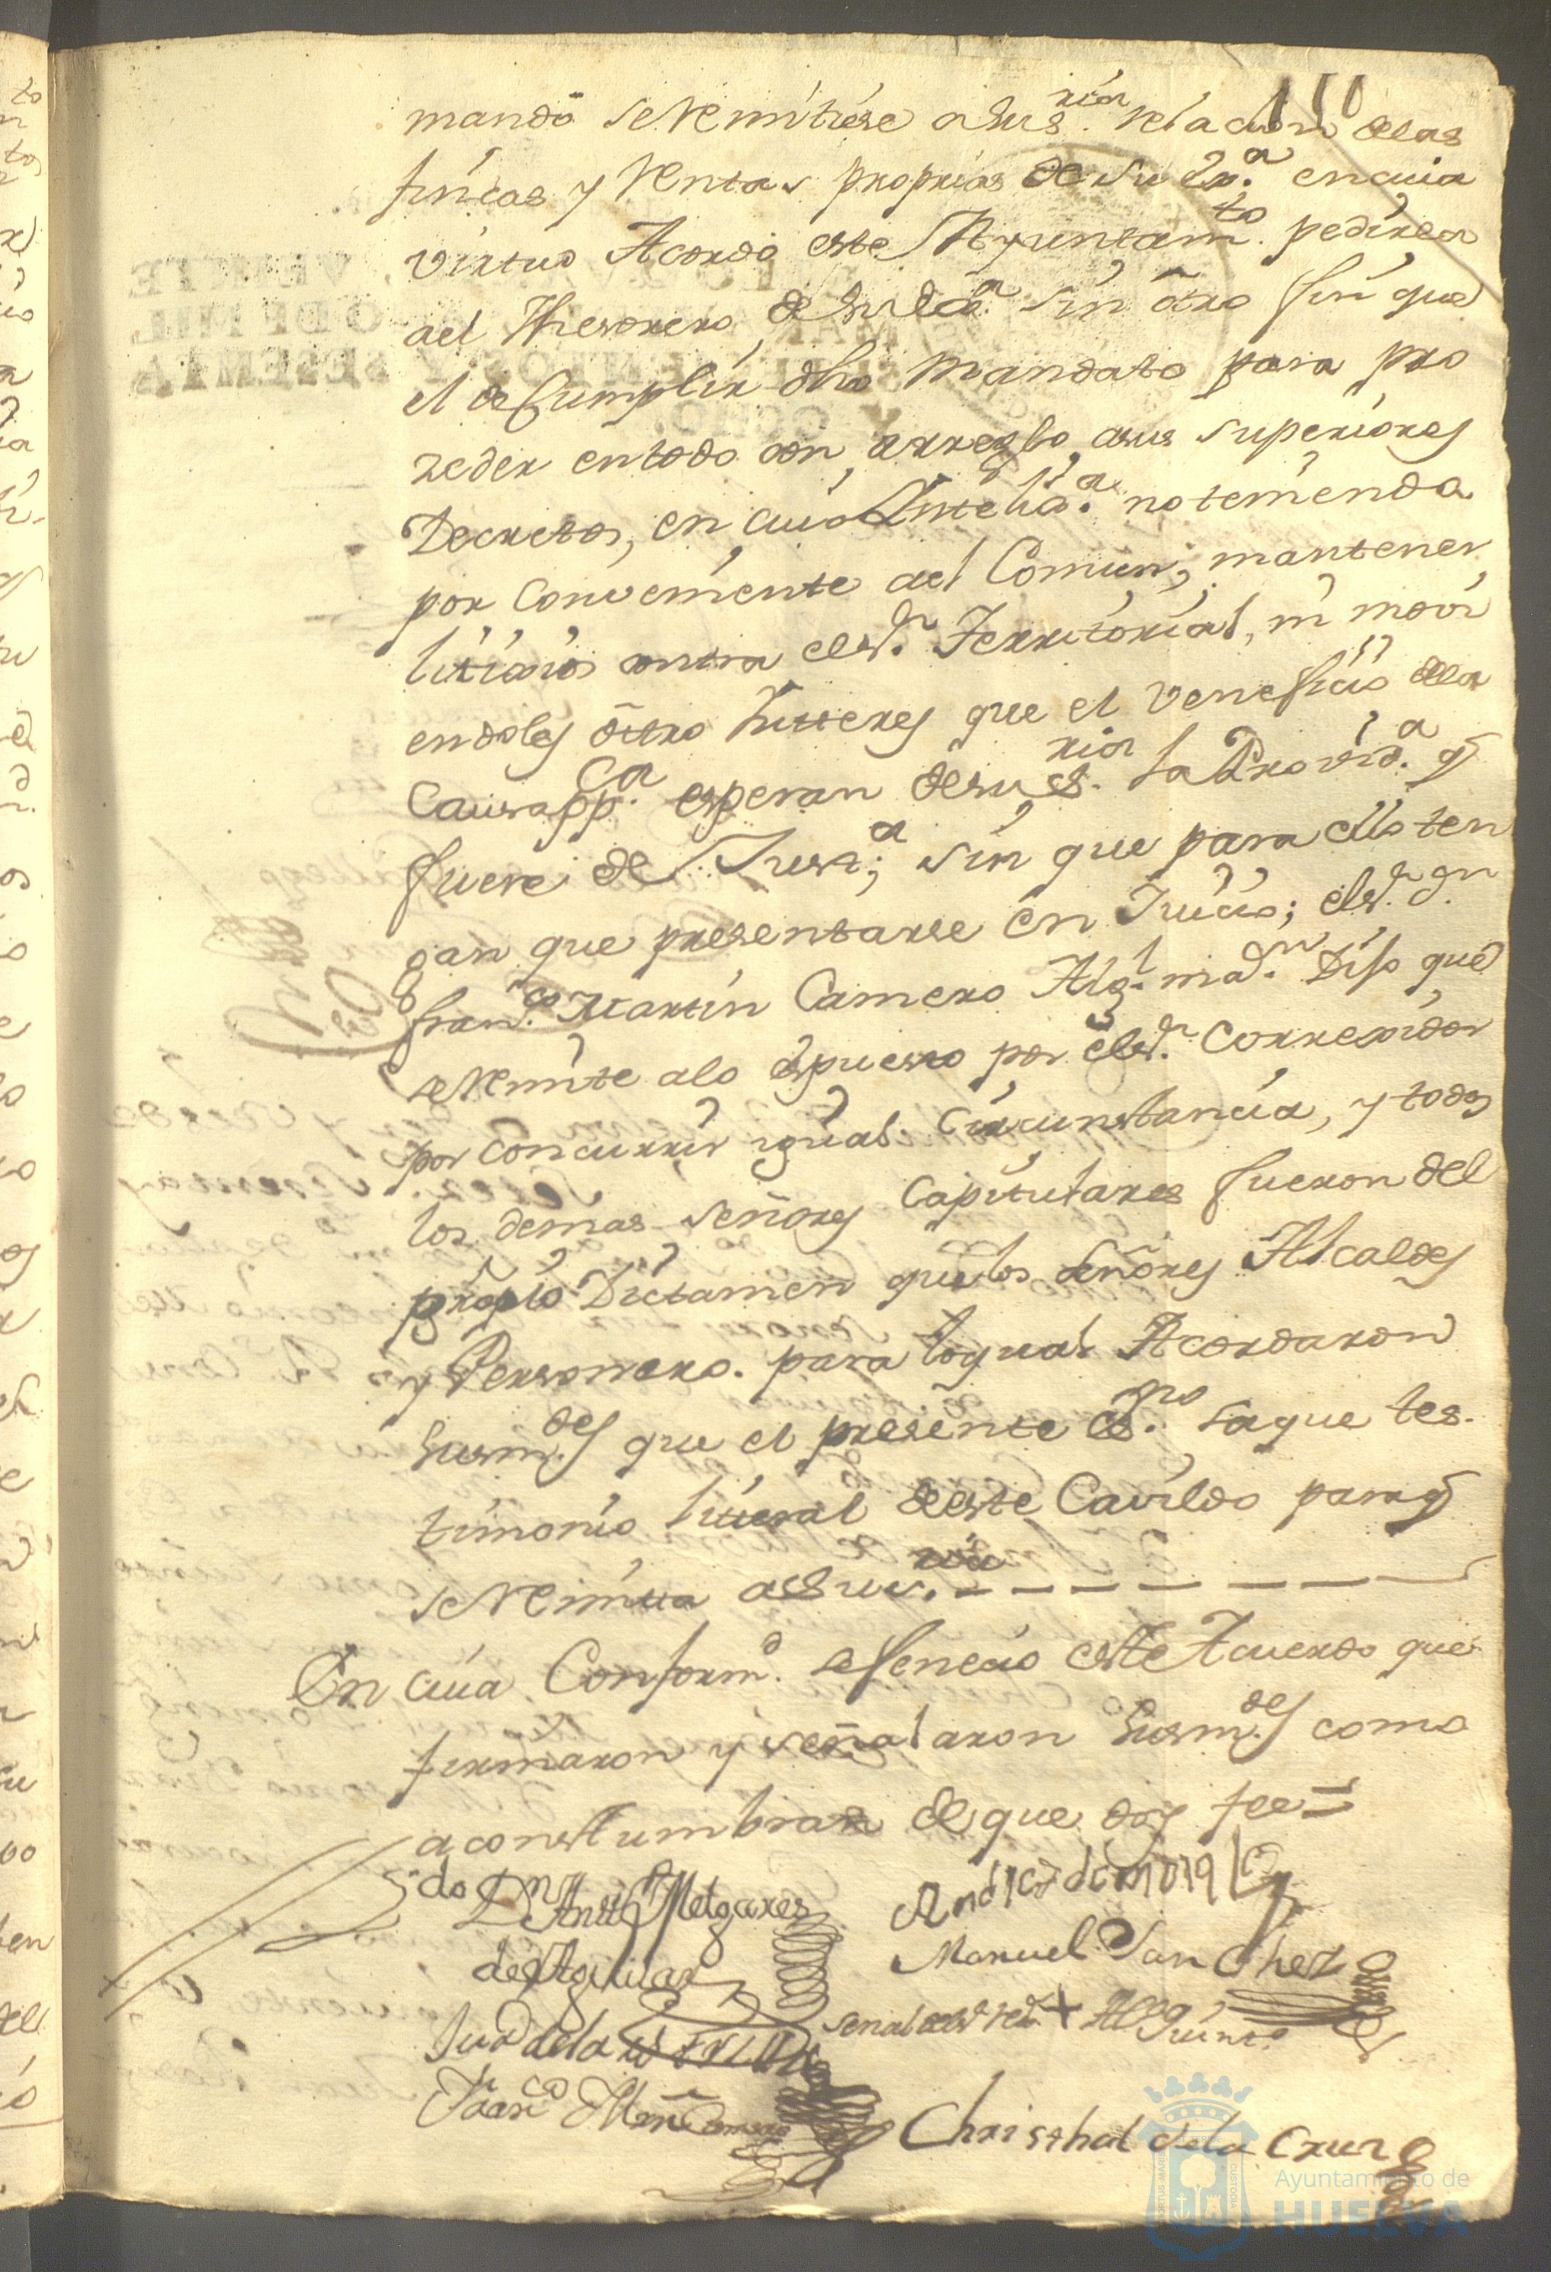 110
mandó se remitiese a Sus.ria relacion delas
fincas y rentas proprias de su Ex.a en cuia
virtud Acordó este Ayuntam.to pedirla
ael Thesorero, de su Ex.a sin otro fin que
el de Cumplir dho Mandato para pro
zeder en todo con arreglo asus superiores
Decretos, en cuia Intelia.a no teniendo
por conveniente ael Comun, mantener
litixios contra el s.r Territorial, ni movi
endoles ottro Intteres que el veneficio dela
Causa pp.ca esperan de su s.ria la Provid.a q
fuere de Just.a; sin que para ello ten
gan que presentarse en Juicio; el s.r d.n
fran.co Martin Camero Alg.l ma.r Dijo que
se remite alo espuesto por el s.r Correxidor
por concurrir igual Circunstancia, y todos
los demas señores Capitulares fueron del
proprio Dictamen que los señores Alcaldes
y Personero. para loqual Acordaron
Susm.des que el presente es.no saque tes-
timonio literal de este Cavildo para q
se remitta a Su s.ria
En cuia Conform.d se fenecio este Acuerdo que
firmaron y señalaron Susm.des como
acostumbran de que doy fee =
do D.n Antt.o Melgarexo
de Aguilar
Manuel Sanchez
señal del s.r + Alg
Juo dela
Fran.co Mrn Camero
Christbal dela Cruz
Ayuntamiento de
HUELVA